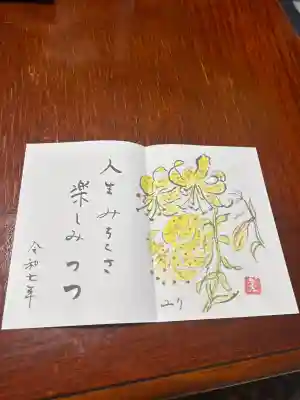 人生みちくさ
楽しみつつ
令和七年
ユリ